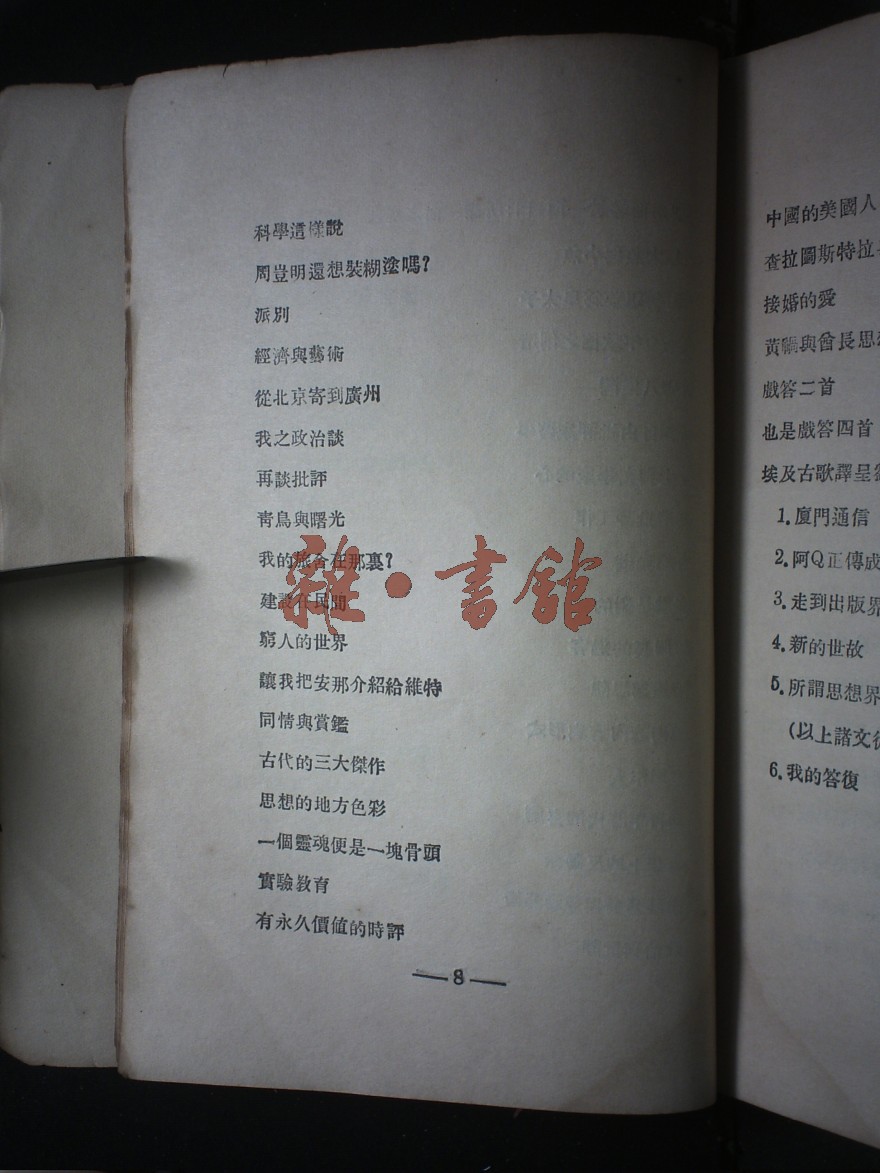 科學這樣說
周豈明還想裝糊塗嗎?
派別
經濟與藝術
從北京寄到廣州
我之政治談
再談批評
靑鳥與曙光
我的旅舍在那裏?
建設在民間
窮人的世界
讓我把安那介紹給維特
同情與賞鑑
古代的三大傑作
思想的地方色彩
一個靈魂便是一塊骨頭
實驗敎育
有永久價値的時評
— 8 —
雜·書館
中國的美國人
查拉圖斯特拉
接婚的愛
黃 與會長思想
戲答二首
也是戲答四首
埃及古歌譯呈
1.廈門通信
2.阿Q正傳成
3.走到出版界
4.新的世故
5.所謂思想界
(以上諸文
6.我的答復